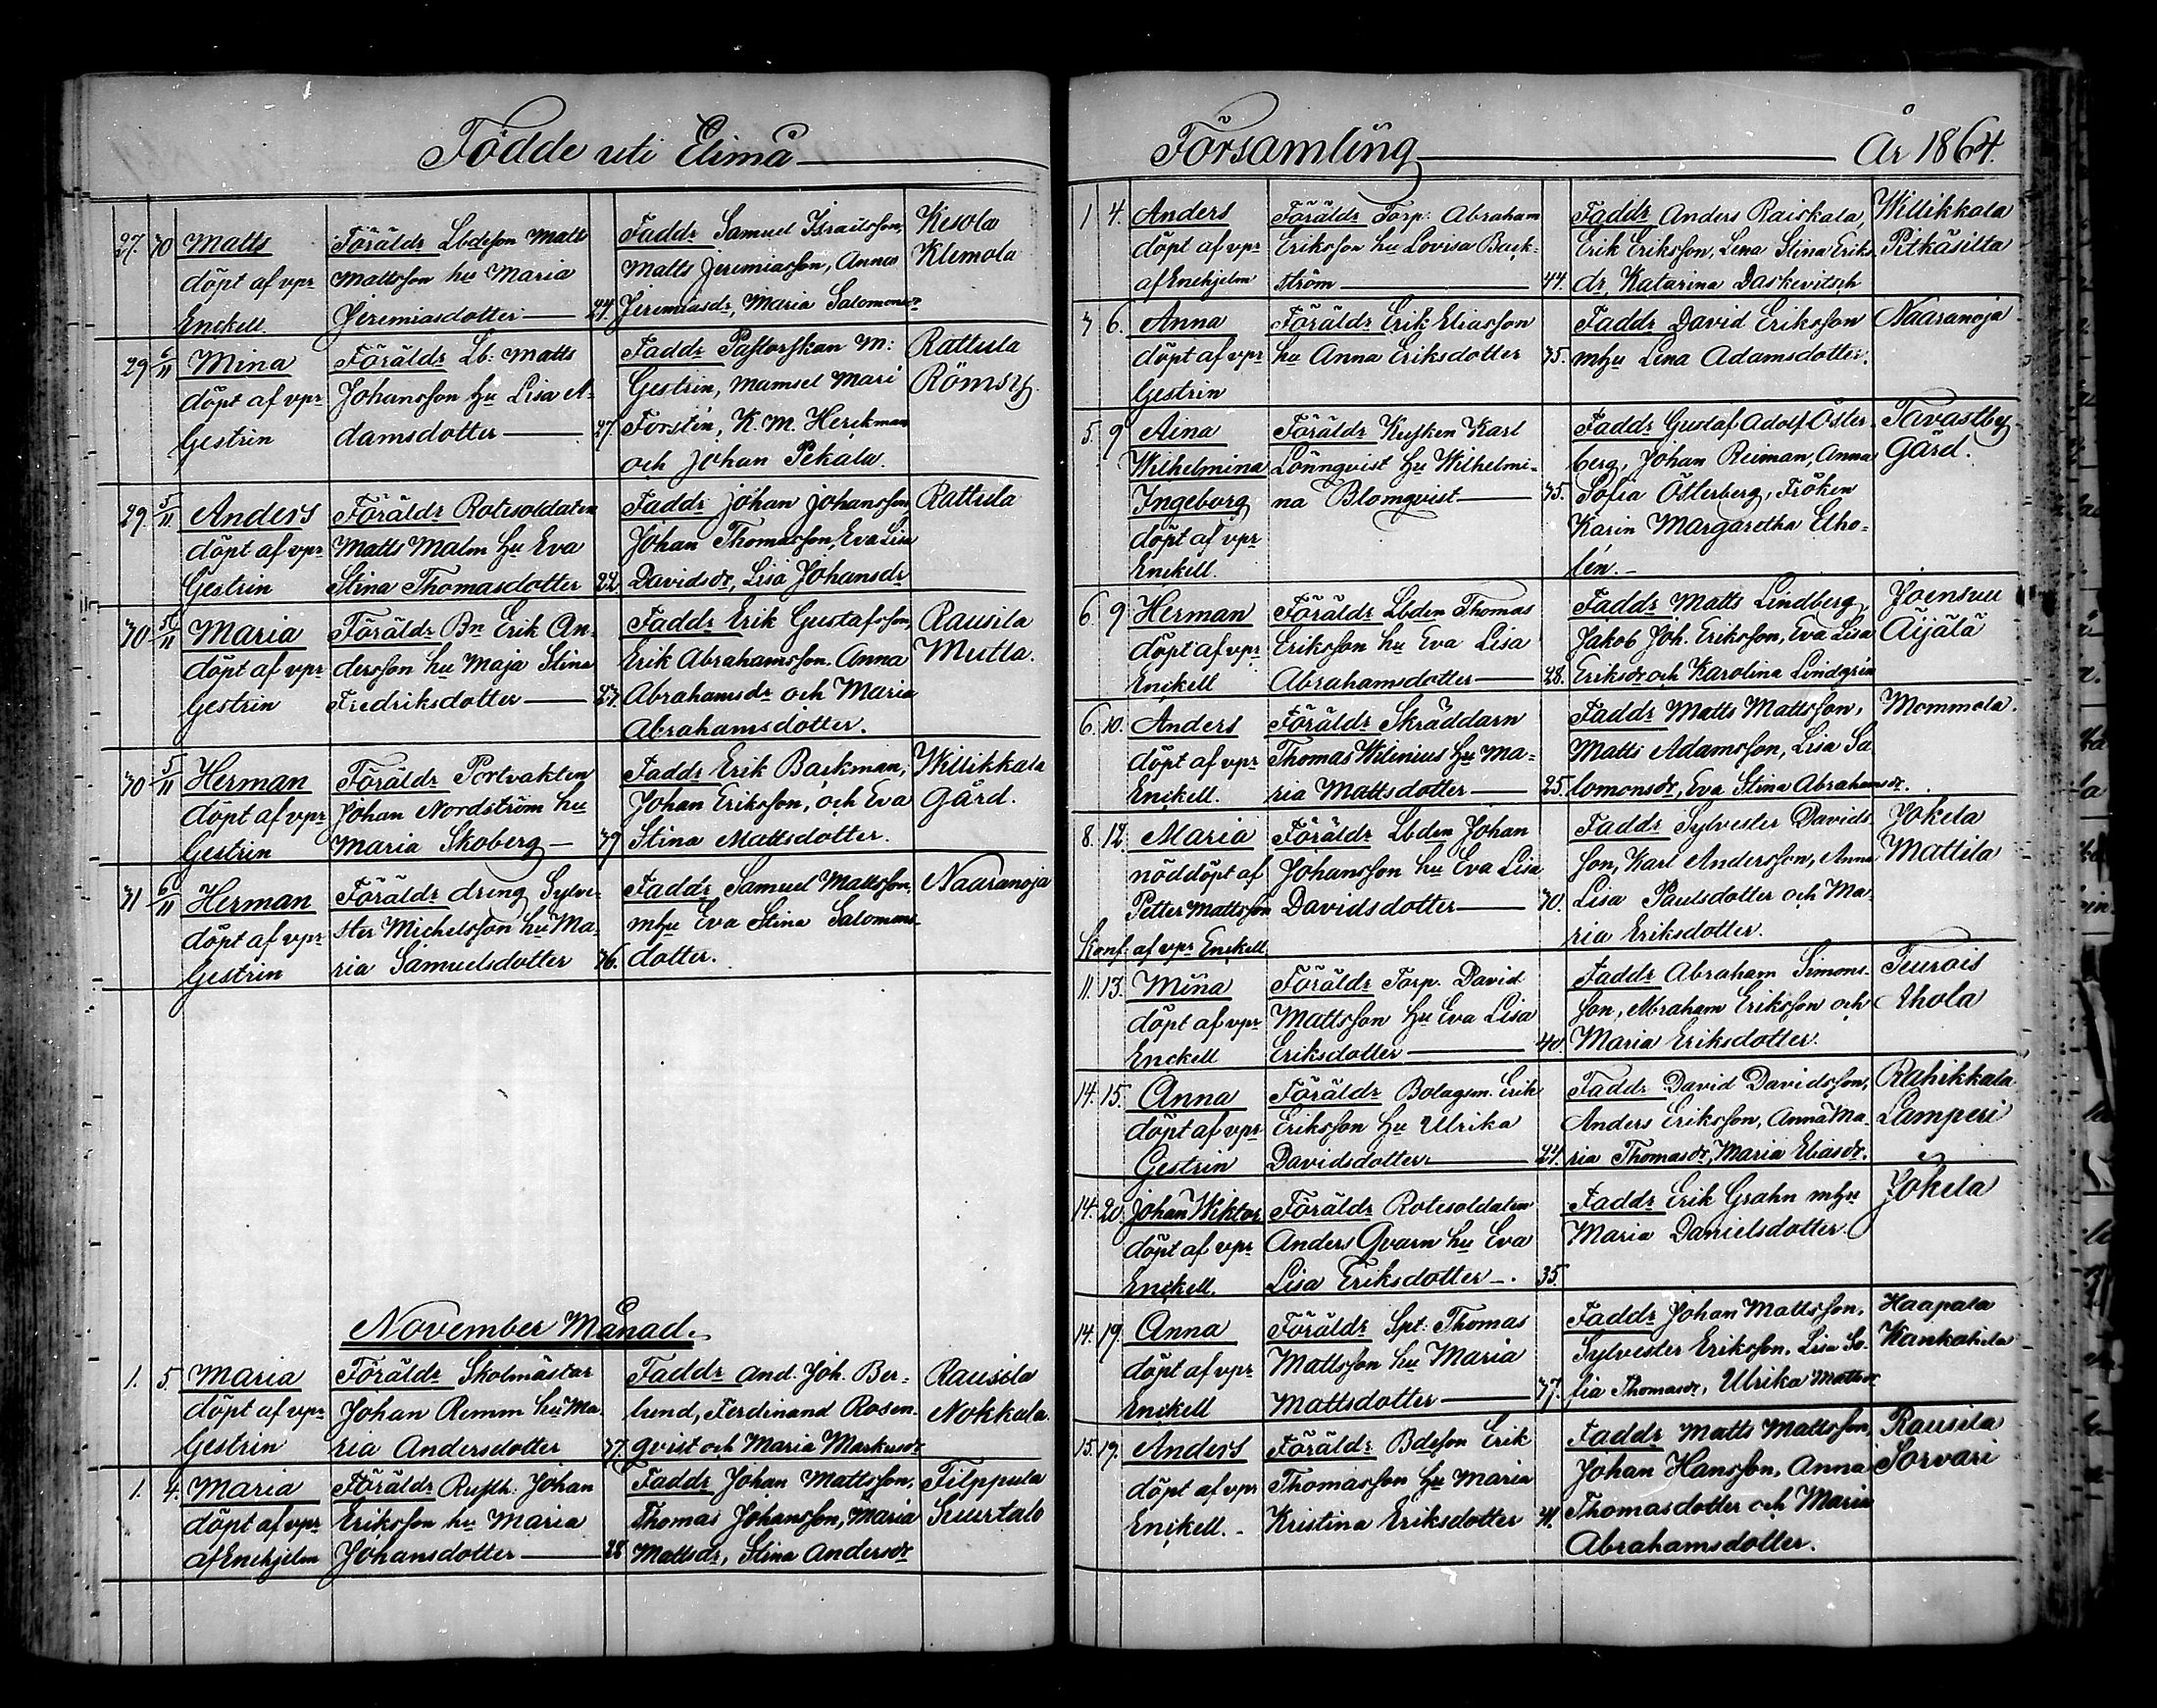 Födde uti Elimä
27. 30 Matts Föräldr Lbdeson Matts Faddr Samuel Israelsson, Kesola
döpt af vpr Mattsson hu Maria Matts Jeremiasson, Anna Klemola
Enckell. Jeremiasdotter 24. Jeremiasdr, Maria Salomonsdr
29 6/11 Mina Föräldr Lb: Matts Faddr Pastorskan M: Rattula
döpt af vpr Johansson hu Lisa A- Gestrin, Mamsel Mari Römsy.
Gestrin damsdotter 27. Forstén, K. M. Herckman
och Johan Pekala.
29. 5/11 Anders Föräldr Rotesoldaten Faddr Johan Johansson Rattula
döpt af vpr Matts Malm hu Eva Johan Thomasson, Eva Lisa
Gestrin Stina Thomasdotter 22. Davidsdr, Lisa Johansdr
30 5/11 Maria Föräldr Bn Erik An- Faddr Erik Gustafsson, Rausila
döpt af vpr dersson hu Maja Stina Erik Abrahamsson. Anna Mutla.
Gestrin Fredriksdotter 27. Abrahamsdr och Maria
Abrahamsdotter.
30 5/11 Herman Föräldr Portvakten Faddr Erik Backman, Willikkala
döpt af vpr Johan Nordström hu Johan Eriksson, och Eva gård.
Gestrin Maria Skoberg 39 Stina Mattsdotter.
31 6/11 Herman Föräldr dreng Sylve- Faddr Samuel Mattsson, Naaranoja
döpt af vpr ster Michelsson hu Ma- mhu Eva Stina Salomons-
Gestrin ria Samuelsdotter 36. dotter.
November Månad.
1. 5. Maria Föräldr Skolmästar Faddr And. Joh. Ber- Rausila
döpt af vpr Johan Remm hu Ma- lund, Ferdinand Rosen- Nokkala.
Gestrin ria Andersdotter 37. qvist och Maria Markusdr
1. 4. Maria Föräldr Rusth: Johan Faddr Johan Mattsson, Filppula
döpt af vpr Eriksson hu Maria Thomas Johansson, Maria Suurtalo
af Enehjelm Johansdotter 28 Mattsdr, Stina Andersdr
Församling År 1864.
1 4. Anders Föräldr Torp: Abraham Faddr Anders Raiskala, Willikkala
döpt af vpr Eriksson hu Lovisa Back- Erik Eriksson, Lena Stina Eriks- Pitkäsilta
af Enehjelm ström 44. dr, Katarina Daskevitsch
3 6. Anna Föräldr Erik Eliasson Faddr David Eriksson Naaranoja
döpt af vpr hu Anna Eriksdotter 35. mhu Lena Adamsdotter.
Gestrin
5. 9 Aina Föräldr Kusken Karl Faddr Gustaf Adolf Öster- Tavastby
Wilhelmina Lönnqvist hu Wilhelmi- berg, Johan Reiman, Anna gård.
Ingeborg na Blomqvist 35. Sofia Österberg, Fröken
döpt af vpr Karin Margaretha Etho-
Enckell. lén.
6. 9 Herman Föräldr Lbden Thomas Faddr Matts Lindberg, Joensuu
döpt af vpr Eriksson hu Eva Lisa Jakob Joh. Eriksson, Eva Lisa Äijälä
Enckell Abrahamsdotter 28. Eriksdr och Karolina Lindgrén
6. 10. Anders Föräldr Skräddarn Faddr Matts Mattsson, Mommola.
döpt af vpr Thomas Wilenius hu Ma- Matts Adamsson, Lisa Sa-
Enckell. ria Mattsdotter 25. lomonsdr, Eva Stina Abrahamsdr.
8. 12. Maria Föräldr Lbden Johan Faddr Sylvester Davids- Jokela
nöddöpt af Johansson hu Eva Lisa son, Karl Andersson, Anna Mattila
Petter Mattsson Davidsdotter 30. Lisa Paulsdotter och Ma-
Konf. af vpr Enckell ria Eriksdotter.
11. 13. Mina Föräldr Torp. David Faddr Abraham Simons- Teurois
döpt af vpr Mattsson hu Eva Lisa son, Abraham Eriksson och Ahola
Enckell Eriksdotter 40 Maria Eriksdotter.
14. 15. Anna Föräldr Bolagsm. Erik Faddr David Davidsson, Rahikkala
döpt af vpr Eriksson hu Ulrika Anders Eriksson, Anna Ma- Lamperi
Gestrin Davidsdotter 24. ria Thomasdr, Maria Eliasdr.
14. 20. Johan Wiktor Föräldr Rotesoldaten Faddr Erik Grahn mhu Jokela
döpt af vpr Anders Qvarn hu Eva Maria Danielsdotter.
Enckell. Lisa Eriksdotter 35.
14. 19. Anna Föräldr Spt: Thomas Faddr Johan Mattsson, Haapala
döpt af vpr Mattsson hu Maria Sylvester Eriksson, Lisa So- Kankahila
Enckell Mattsdotter 37. fia Thomasdr, Ulrika Mattsdr
15. 19. Anders Föräldr Bdeson Erik Faddr Matts Mattsson, Rausila
döpt af vpr Thomasson hu Maria Johan Hansson, Anna Sorvari
Enckell. Kristina Eriksdotter 31. Thomasdotter och Maria
Abrahamsdotter.